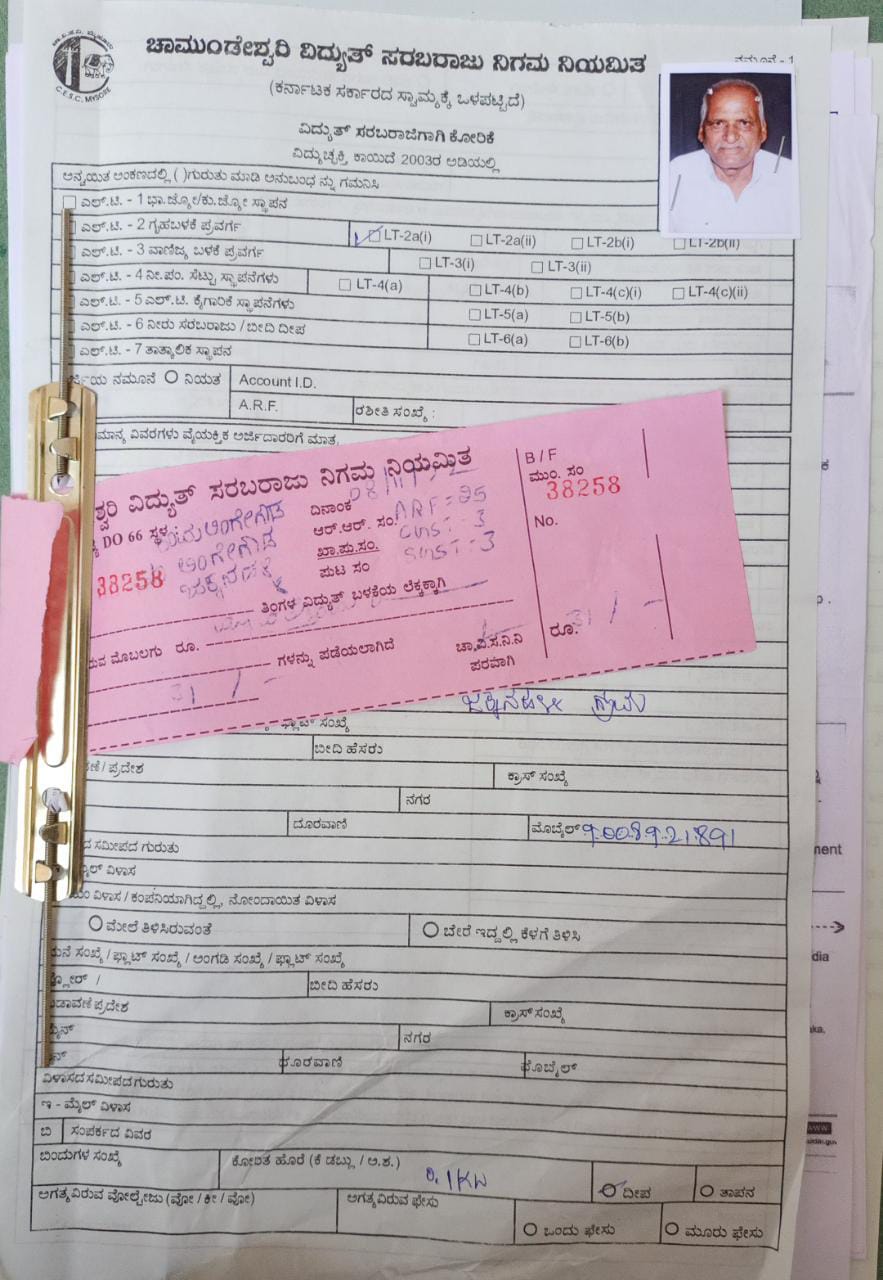 C.E.S.C. MYSORE
ಚಾಮುಂಡೇಶ್ವರಿ ವಿದ್ಯುತ್ ಸರಬರಾಜು ನಿಗಮ ನಿಯಮಿತ
ನಮೂನೆ - 1
(ಕರ್ನಾಟಕ ಸರ್ಕಾರದ ಸ್ವಾಮ್ಯಕ್ಕೆ ಒಳಪಟ್ಟಿದೆ)
ವಿದ್ಯುತ್ ಸರಬರಾಜಿಗಾಗಿ ಕೋರಿಕೆ
ವಿದ್ಯುಚ್ಛಕ್ತಿ ಕಾಯಿದೆ 2003ರ ಅಡಿಯಲ್ಲಿ
ಅನ್ವಯಿತ ಅಂಕಣದಲ್ಲಿ ( )ಗುರುತು ಮಾಡಿ ಅನುಬಂಧ ನ್ನು ಗಮನಿಸಿ
ಎಲ್.ಟಿ. - 1 ಭಾ.ಜ್ಯೋ/ಕು.ಜ್ಯೋ ಸ್ಥಾಪನ
ಎಲ್.ಟಿ. - 2 ಗೃಹಬಳಕೆ ಪ್ರವರ್ಗ LT-2a(i) LT-2a(ii) LT-2b(i) LT-2b(ii)
ಎಲ್.ಟಿ. - 3 ವಾಣಿಜ್ಯ ಬಳಕೆ ಪ್ರವರ್ಗ LT-3(i) LT-3(ii)
ಎಲ್.ಟಿ. - 4 ನೀ.ಪಂ. ಸೆಟ್ಟು ಸ್ಥಾಪನೆಗಳು LT-4(a) LT-4(b) LT-4(c)(i) LT-4(c)(ii)
ಎಲ್.ಟಿ. - 5 ಎಲ್.ಟಿ. ಕೈಗಾರಿಕೆ ಸ್ಥಾಪನೆಗಳು LT-5(a) LT-5(b)
ಎಲ್.ಟಿ. - 6 ನೀರು ಸರಬರಾಜು / ಬೀದಿ ದೀಪ LT-6(a) LT-6(b)
ಎಲ್.ಟಿ. - 7 ತಾತ್ಕಾಲಿಕ ಸ್ಥಾಪನ
ನಮೂನೆ ನಿಯತ Account I.D.
A.R.F. ರಶೀತಿ ಸಂಖ್ಯೆ :
ವಿವರಗಳು ವೈಯಕ್ತಿಕ ಅರ್ಜಿದಾರರಿಗೆ ಮಾತ್ರ.
ಶ್ವರಿ ವಿದ್ಯುತ್ ಸರಬರಾಜು ನಿಗಮ ನಿಯಮಿತ
B / F
ಮುಂ. ಸಂ
38258
No.
DO 66 ಸ್ಥಳ :
38258
ದಿನಾಂಕ
ಆರ್.ಆರ್. ಸಂ. ARF = 25
ಖಾ.ಪು.ಸಂ. : 3
ಪುಟ ಸಂ : 3
ತಿಂಗಳ ವಿದ್ಯುತ್ ಬಳಕೆಯ ಲೆಕ್ಕಕ್ಕಾಗಿ
ಮೊಬಲಗು ರೂ.
ಗಳನ್ನು ಪಡೆಯಲಾಗಿದೆ
31 / -
ಚಾ.ವಿ.ಸ.ನಿ.ನಿ
ಪರವಾಗಿ
ರೂ. 31 / -
ಗ್ರಾಮ
ಫ್ಲಾಟ್ ಸಂಖ್ಯೆ
ಬೀದಿ ಹೆಸರು
/ ಪ್ರದೇಶ ಕ್ರಾಸ್ ಸಂಖ್ಯೆ
ನಗರ
ದೂರವಾಣಿ ಮೊಬೈಲ್ 9008921891
ಸಮೀಪದ ಗುರುತು
ವಿಳಾಸ
ವಿಳಾಸ / ಕಂಪನಿಯಾಗಿದ್ದಲ್ಲಿ, ನೋಂದಾಯಿತ ವಿಳಾಸ
ಮೇಲೆ ತಿಳಿಸಿರುವಂತೆ ಬೇರೆ ಇದ್ದಲ್ಲಿ ಕೆಳಗೆ ತಿಳಿಸಿ
ಸಂಖ್ಯೆ / ಫ್ಲಾಟ್ ಸಂಖ್ಯೆ / ಅಂಗಡಿ ಸಂಖ್ಯೆ / ಫ್ಲಾಟ್ ಸಂಖ್ಯೆ
ಬೀದಿ ಹೆಸರು
ಪ್ರದೇಶ ಕ್ರಾಸ್ ಸಂಖ್ಯೆ
ನಗರ
ದೂರವಾಣಿ ಮೊಬೈಲ್
ವಿಳಾಸದ ಸಮೀಪದ ಗುರುತು
ಇ - ಮೈಲ್ ವಿಳಾಸ
ಬಿ ಸಂಪರ್ಕದ ವಿವರ
ಬಿಂದುಗಳ ಸಂಖ್ಯೆ ಕೋರಿತ ಹೊರೆ (ಕೆ ಡಬ್ಲು / ಅ.ಶ.) 0.1KW ದೀಪ ತಾಪನ
ಅಗತ್ಯವಿರುವ ವೋಲ್ಟೇಜು (ವೋ / ಕೀ / ವೋ) ಅಗತ್ಯವಿರುವ ಫೇಸು ಒಂದು ಫೇಸು ಮೂರು ಫೇಸು